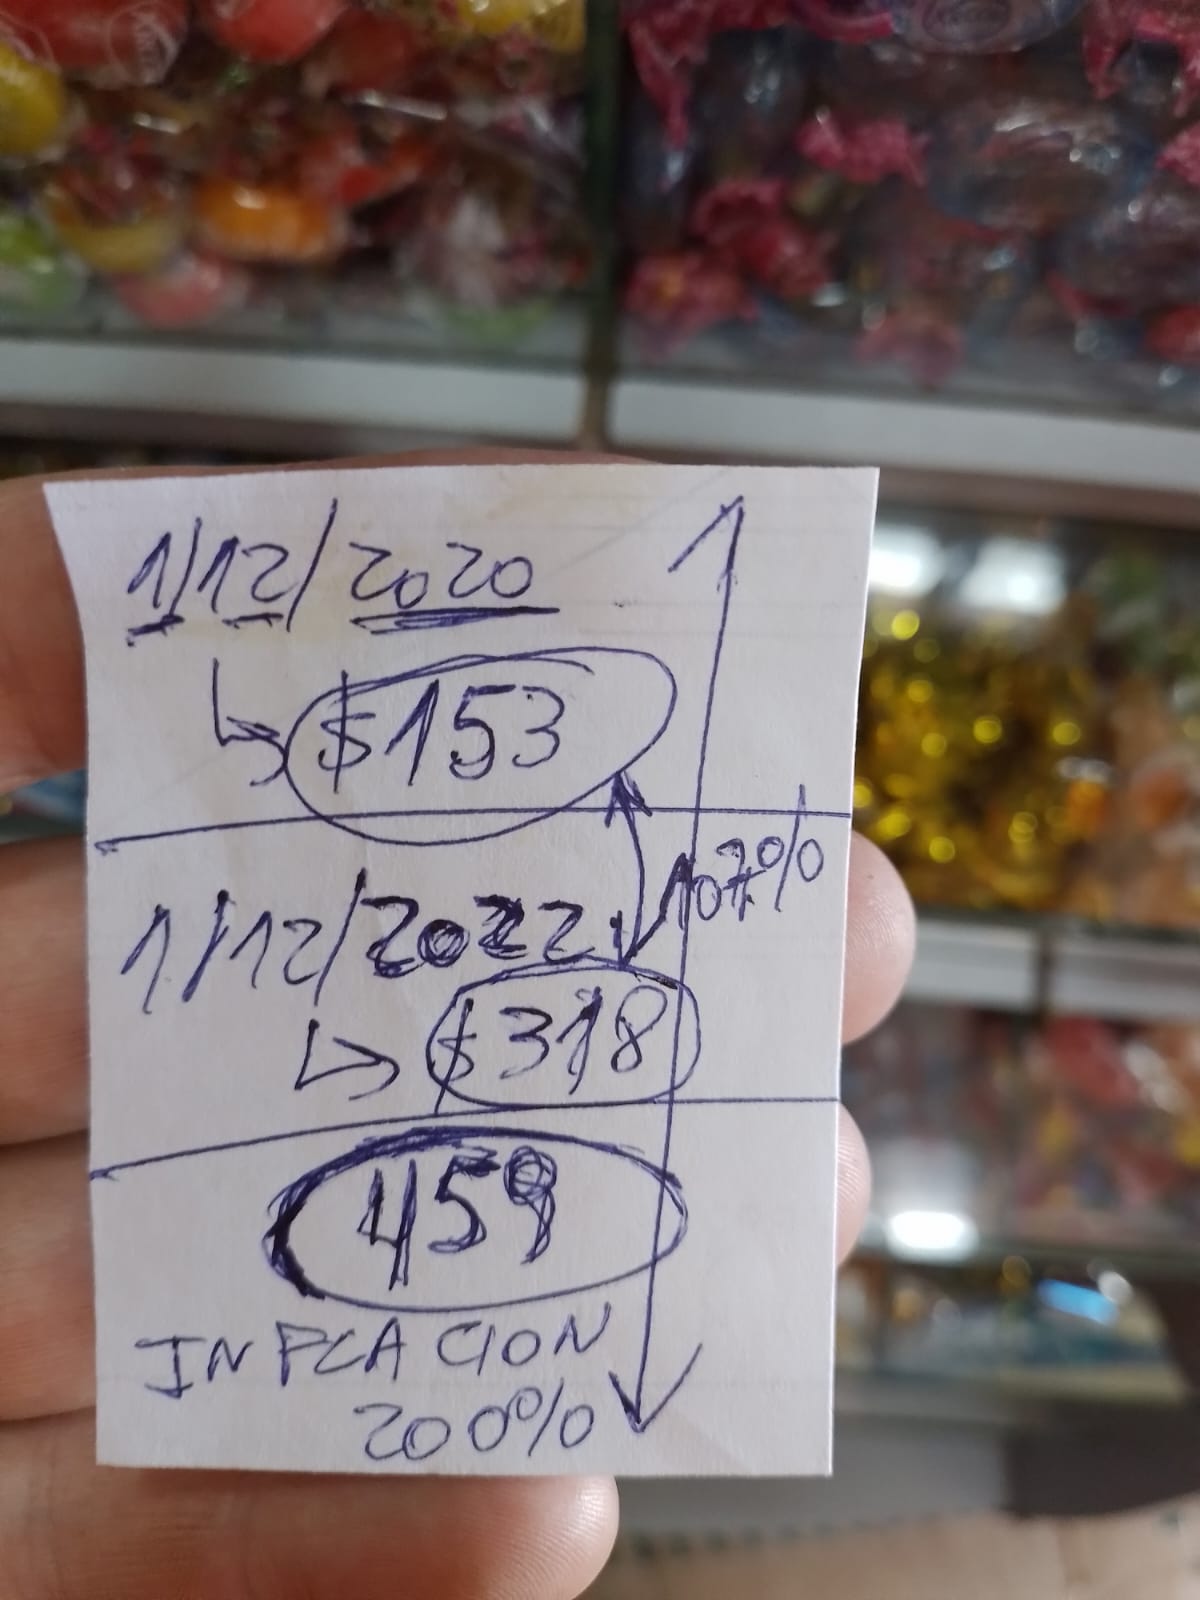 1/12/2020
$153
107%
1/12/2022
$318
459
INFLACION
200%